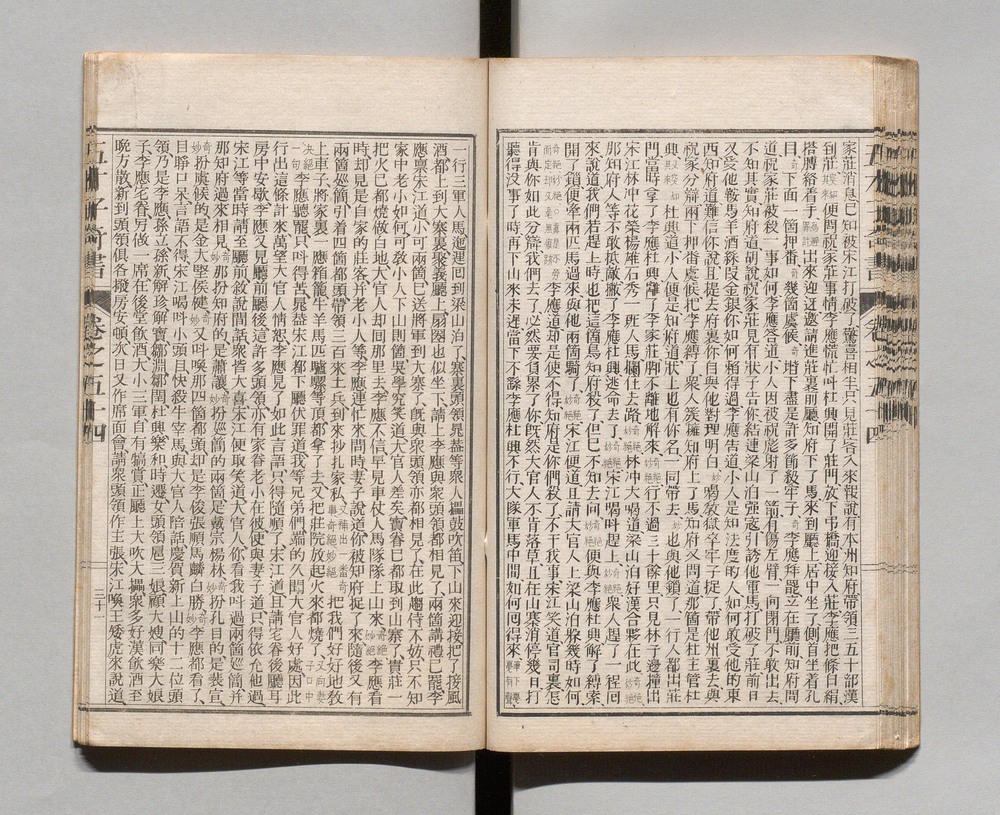 家莊消息已知被宋江打破了驚喜相半只見莊客入來報說有本州知府帶領三五十部漢
到莊便問祝家莊事情李應慌忙叫杜興開了莊門放下吊橋迎接入莊李應把條白絹
搭膊絡着手出來迎迓邀請進莊裏前廳知府下了馬來到廳上居中坐了側首坐着孔
目奇下面一個押番奇幾個虞候奇堦下盡是許多節級牢子奇李應拜罷立在廳前知府問
道祝家莊被殺一事如何李應答道小人因被祝彪射了一箭有傷左臂一向閉門不敢出去
不知其實知府道胡說祝家莊見有狀子告你結連梁山泊强寇引誘他軍馬打破了莊前日
又受他鞍馬羊酒綵段金銀你如何賴得過李應告道小人是知法度的人如何敢受他的東
西知府道難信你說且提去府裏你自與他對理明白妙絕喝教獄卒牢子捉了帶他州裏去與
祝家分辯兩下押番虞候把李應縛了衆人簇擁知府上了馬知府又問道那個是杜主管杜
興杜興道小人便是知府道狀上也有你名一同帶去妙也與他鎖了一行人都出莊
門當時拿了李應杜興離了李家莊脚不離地解來奇絕妙絕行不過三十餘里只見林子邊撞出
宋江林冲花榮楊雄石秀一班人馬攔住去路奇絕妙絕林冲大喝道梁山泊好漢合夥在此奇絕妙絕
那知府人等不敢抵敵撇了李應杜興逃命去了奇絕妙絕宋江喝叫趕上奇絕妙絕衆人趕了一程回
來說道我們若趕上時也把這個鳥知府殺了但已不知去向奇絕妙絕便與李應杜興解了縛索
開了鎖便牽兩匹馬過來與他兩個騎了奇絕妙絕宋江便道且請大官人上梁山泊躲幾時如何
李應道却是使不得知府是你們殺了不干我事宋江笑道官司裏怎
肯與你如此分辯我們去了必然要負累了你旣然大官人不肯落草且在山寨消停幾日打
聽得沒事了時再下山來未遲當下不繇李應杜興不行大隊軍馬中間如何回得來
一行三軍人馬迤邐回到梁山泊了寨裏頭領晁蓋等衆人擂鼓吹笛下山來迎接把了接風
酒都上到大寨裏聚義廳上扇圈也似坐下請上李應與衆頭領都相見了兩個講禮已罷李
應稟宋江道小可兩個已送將軍到大寨了旣與衆頭領亦都相見了在此趨侍不妨只不知
家中老小如何可敎小人下山則個吳學究笑道大官人差矣寶眷已都取到山寨了貴莊一
把火已都燒做白地大官人却回那里去李應不信早見車仗人馬隊隊上山來奇絕妙絕李應看
時却見是自家的莊客并老小人等李應連忙來問時妻子說道你被知府捉了來隨後又有
兩個巡簡引着四個都頭帶領三百來土兵到來抄扎家私又補出一番奇事奇絕妙絕把我們好好地敎
上車子將家裏一應箱籠牛羊馬匹驢騾等項都拿了去又把莊院放起火來都燒了又向妻子口中決絕一句
李應聽罷只叫得苦晁蓋宋江都下廳伏罪道我等兄弟們端的久聞大官人好處因此
行出這條計來萬望大官人情恕李應見了如此言語只得隨順了宋江道且請宅眷後廳耳
房中安歇李應又見廳前廳後這許多頭領亦有家眷老小在彼便與妻子道只得依允他過
宋江等當時請至廳前敘說閒話衆皆大喜宋江便取笑道大官人你看我叫過兩個巡簡并
那知府過來相見奇妙那扮知府的是蕭讓奇妙扮巡簡的兩個是戴宗楊林奇妙扮孔目的是裴宣
奇妙扮虞候的是金大堅侯健奇妙又叫喚那四個都頭却是李俊張順馬麟白勝奇妙李應都看了
目睜口呆言語不得宋江喝叫小頭目快殺牛宰馬與大官人陪話慶賀新上山的十二位頭
領乃是李應孫立孫新解珍解寶鄒淵鄒閏杜興樂和時遷女頭領扈三娘顧大嫂同樂大娘
子李應宅眷另做一席在後堂飲酒大小三軍自有犒賞正廳上大吹大擂衆多好漢飲酒至
晚方散新到頭領俱各撥房安頓次日又作席面會請衆頭領作主張宋江喚王矮虎來說道
五才子奇書
卷之五十四